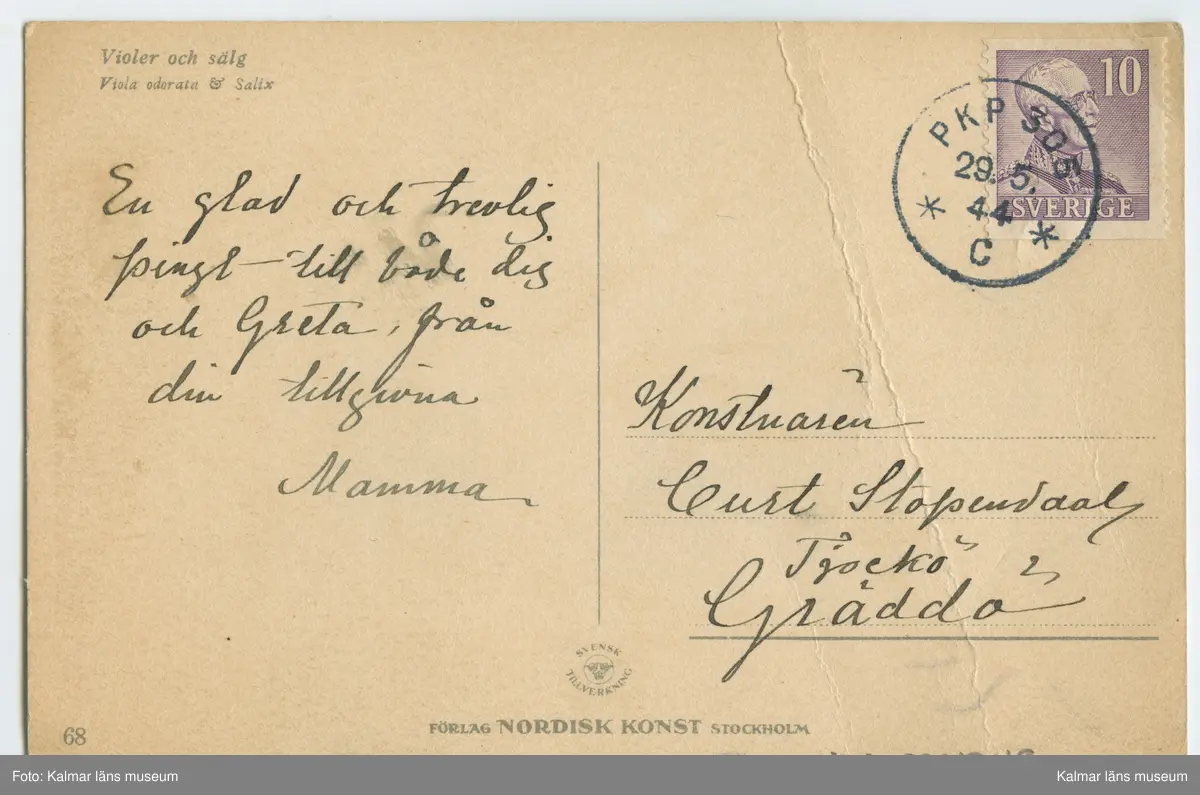 Violer och sälg
Viola odorata & Salix
10
SVERIGE
PKP 305
29. 5.
44
C
En glad och trevlig
pingst till både dig
och Greta, från
din tillgivna
Mamma
Konstnären
Curt Stopendaal
Tjockö
Gräddö
SVENSK
TILLVERKNING
FÖRLAG NORDISK KONST STOCKHOLM
68
Foto: Kalmar läns museum
Kalmar läns museum